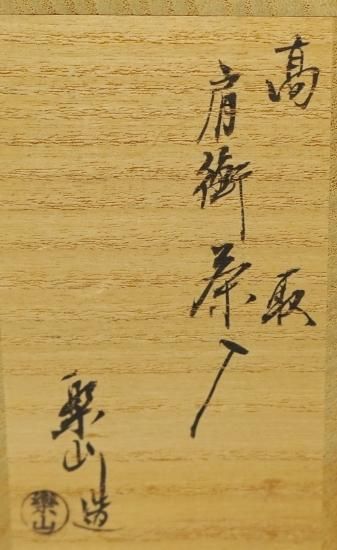 高取
肩衝茶入
樂山造
樂山